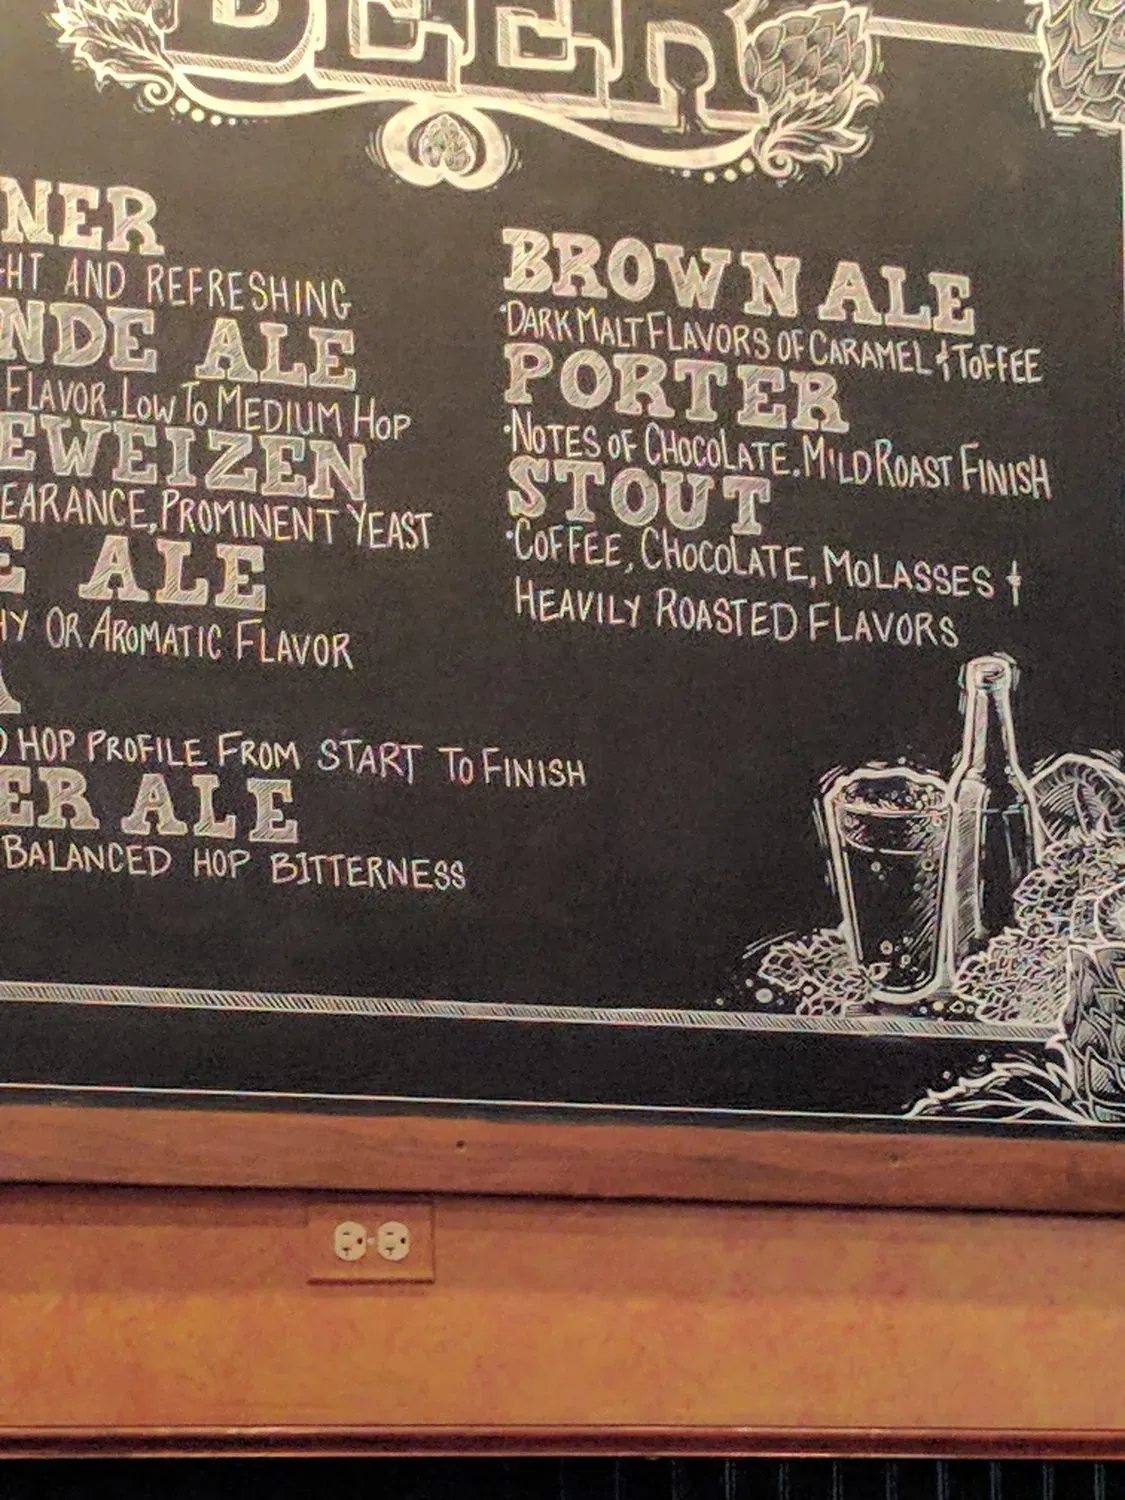 BEER
NER
HT AND REFRESHING
NDE ALE
FLAVOR. LOW TO MEDIUM HOP
EWEIZEN
EARANCE, PROMINENT YEAST
E ALE
HY OR AROMATIC FLAVOR
A
D HOP PROFILE FROM START TO FINISH
ER ALE
BALANCED HOP BITTERNESS
BROWN ALE
·DARK MALT FLAVORS OF CARAMEL & TOFFEE
PORTER
·NOTES OF CHOCOLATE. MILD ROAST FINISH
STOUT
·COFFEE, CHOCOLATE, MOLASSES &
HEAVILY ROASTED FLAVORS